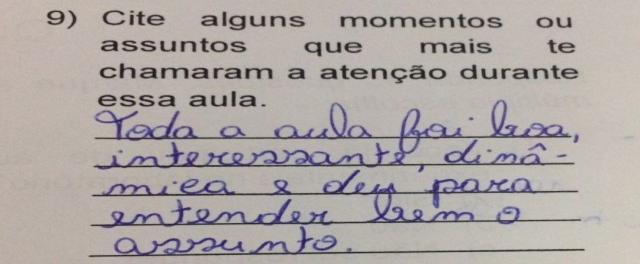 9) Cite alguns momentos ou
assuntos que mais te
chamaram a atenção durante
essa aula.
Toda a aula foi boa,
interessante, dinâ-
mica e deu para
entender bem o
assunto.